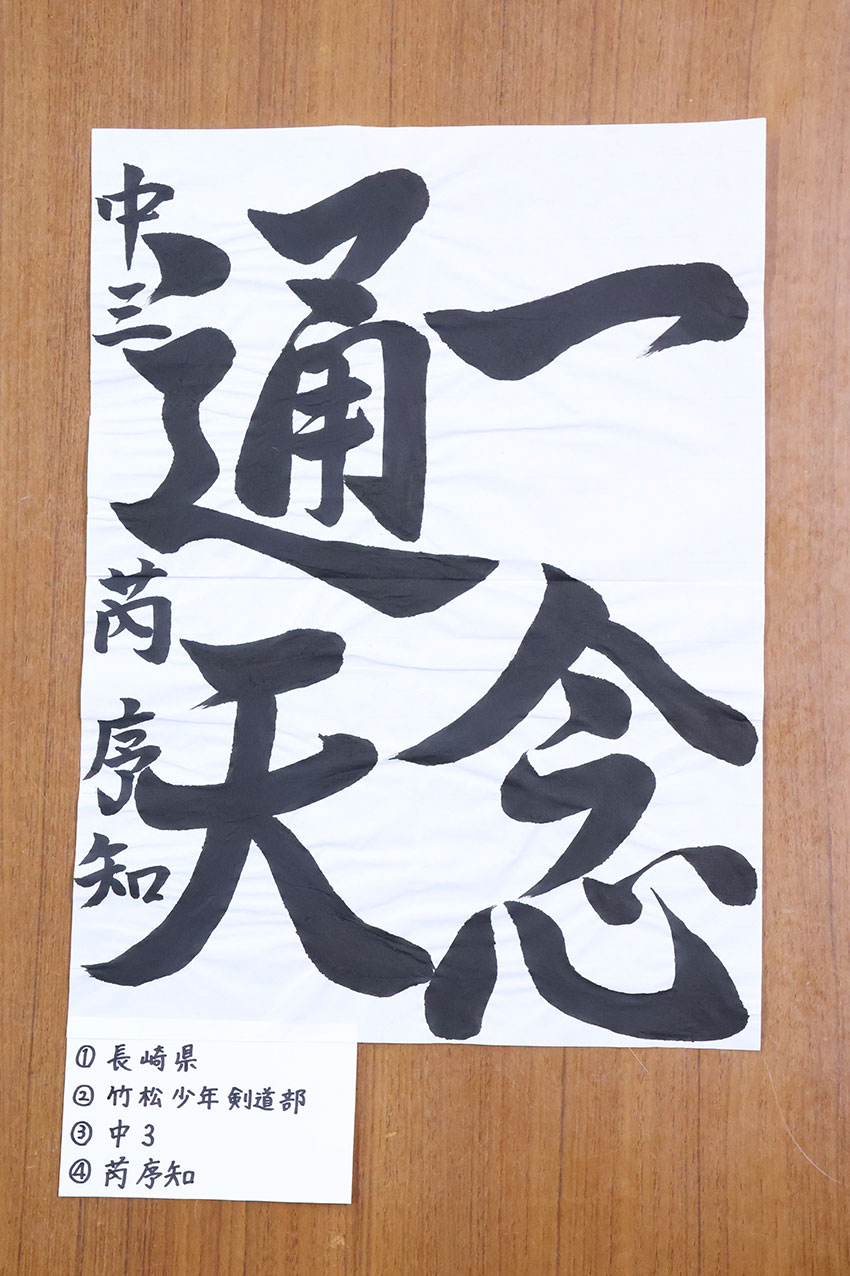 一念
通天
中三 芮 序知
① 長崎県
② 竹松少年剣道部
③ 中3
④ 芮序知